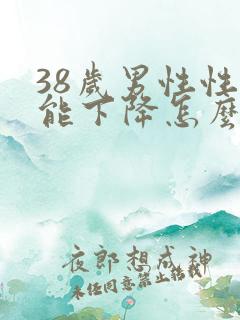 38歲男性性
能下降怎麼
夜郎想成神
未任同意禁止結載